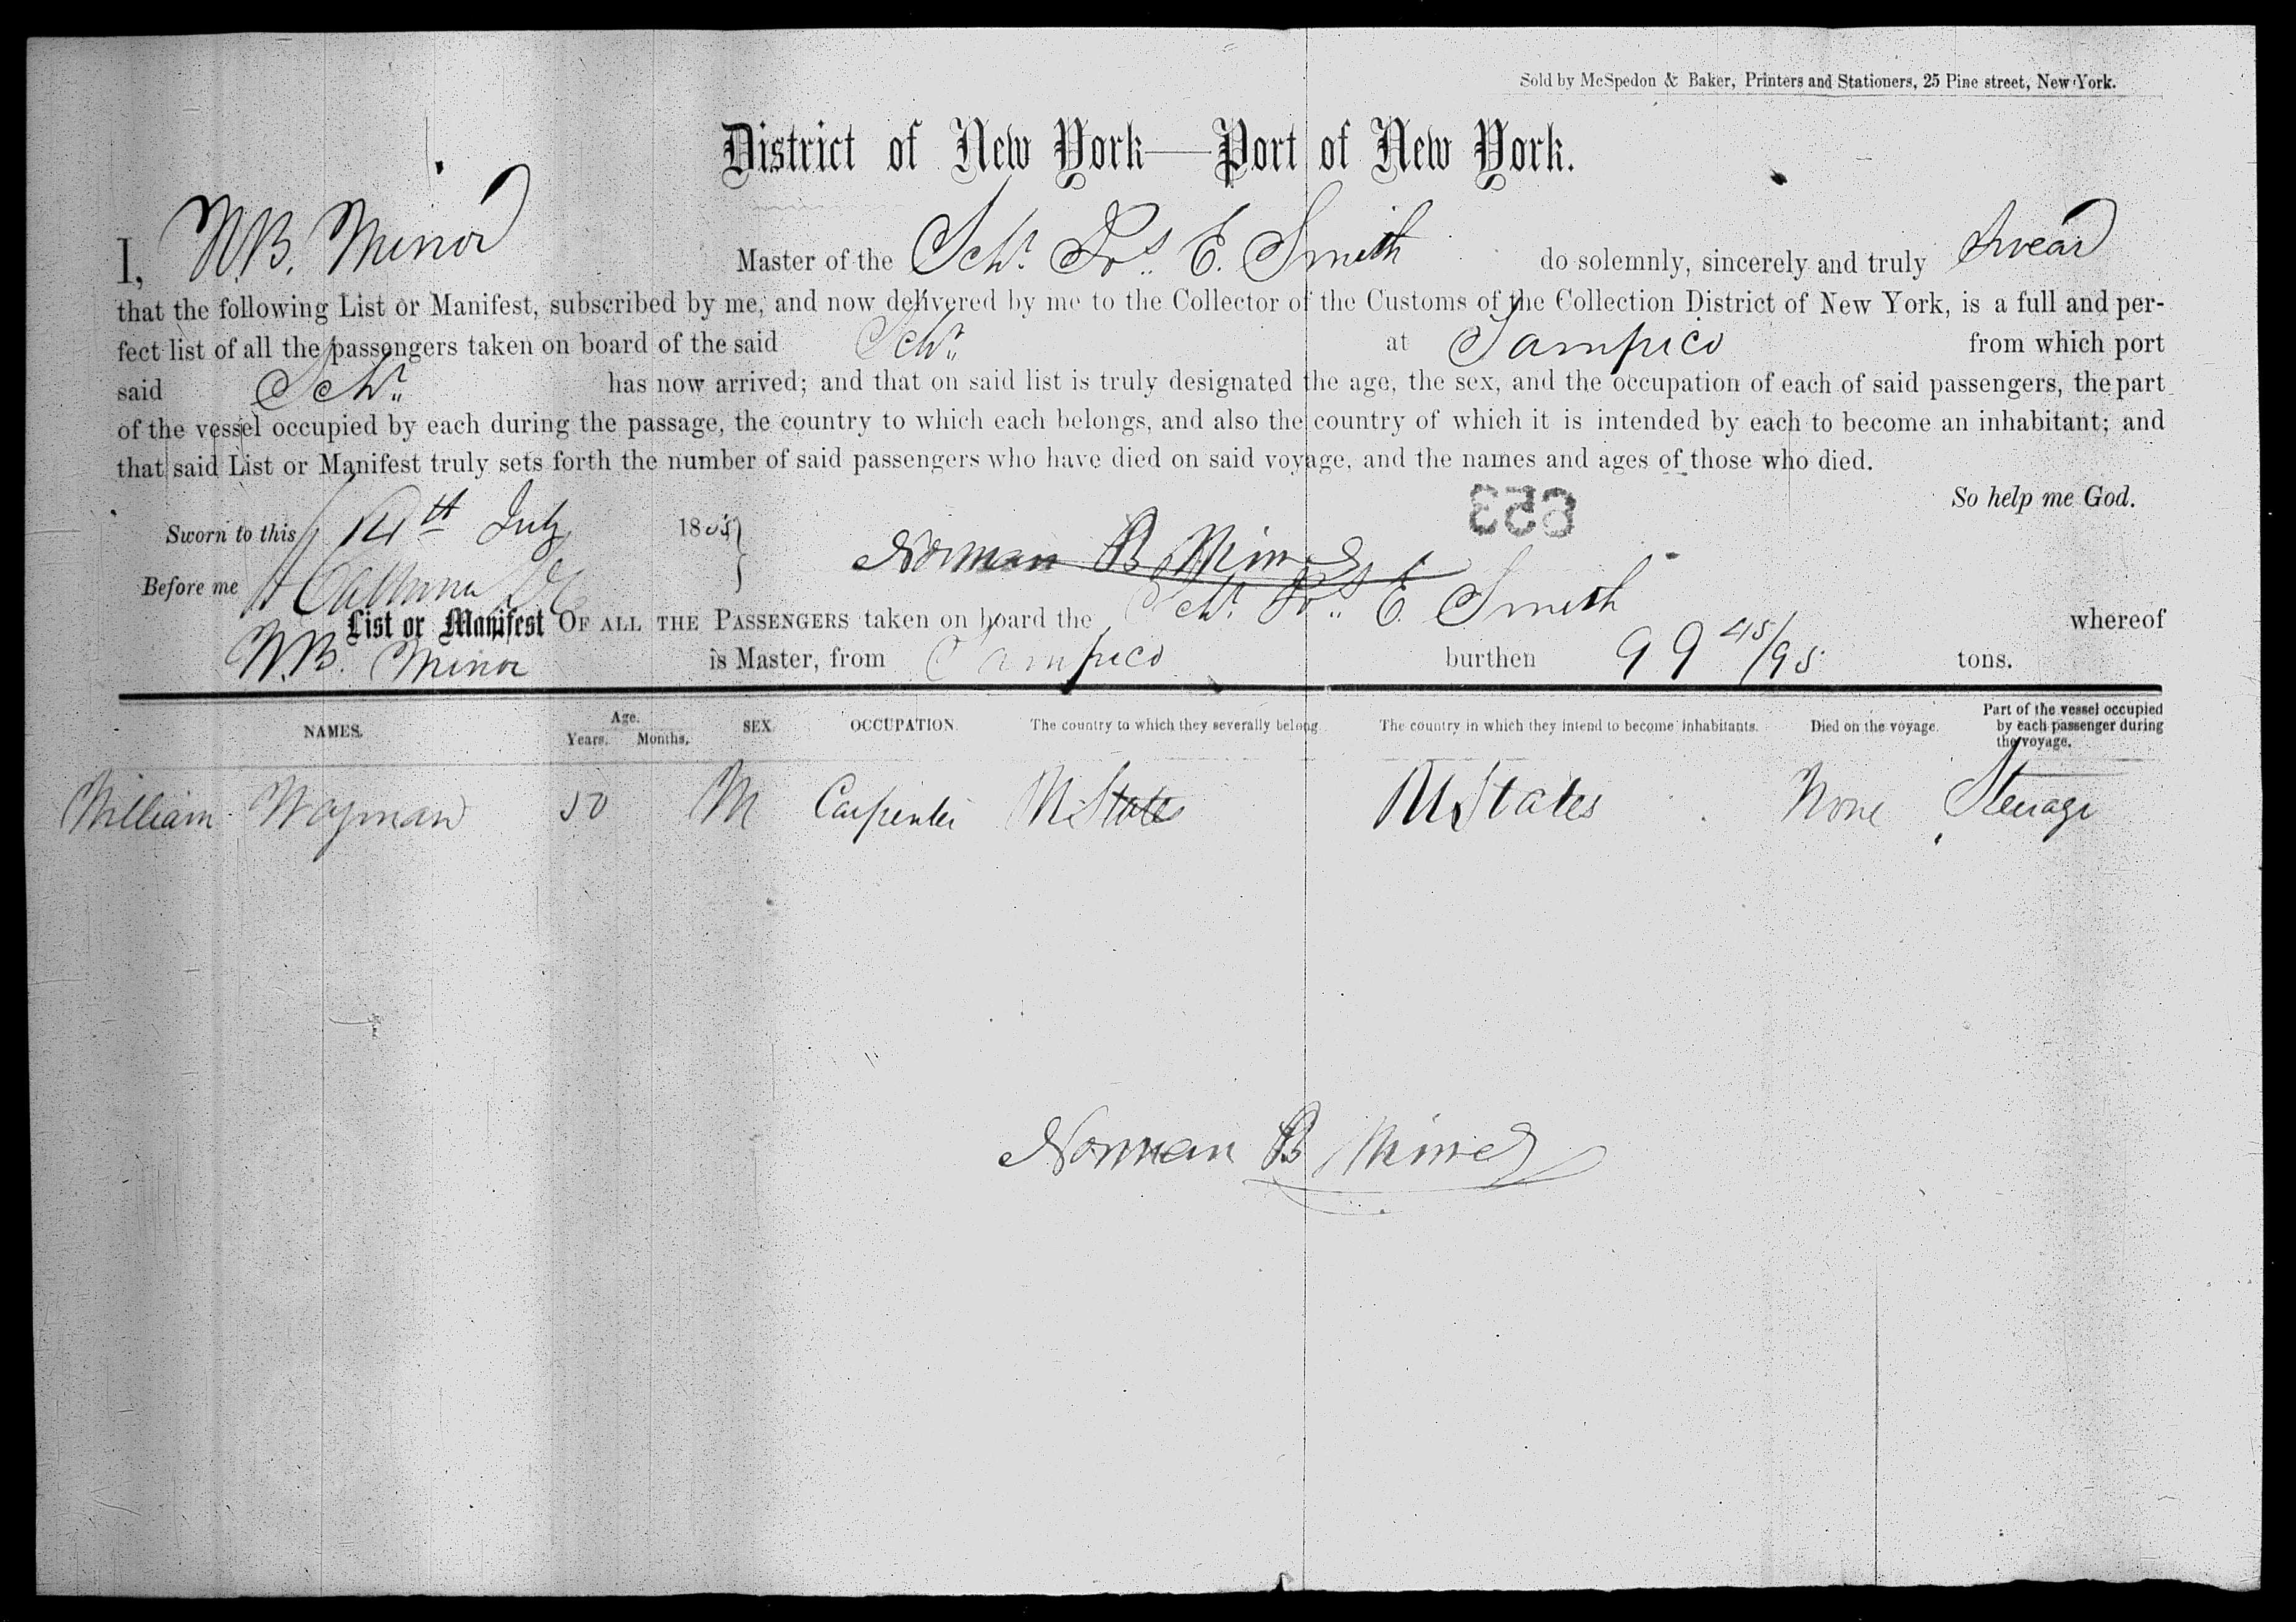 Sold by McSpedon & Baker, Printers and Stationers, 25 Pine street, New York.
District of New York—Port of New York.
I, N.B. Minor Master of the Schr. E. Smith do solemnly, sincerely and truly swear
that the following List or Manifest, subscribed by me, and now delivered by me to the Collector of the Customs of the Collection District of New York, is a full and per-
fect list of all the passengers taken on board of the said Schr. at Tampico from which port
said Schr. has now arrived; and that on said list is truly designated the age, the sex, and the occupation of each of said passengers, the part
of the vessel occupied by each during the passage, the country to which each belongs, and also the country of which it is intended by each to become an inhabitant; and
that said List or Manifest truly sets forth the number of said passengers who have died on said voyage, and the names and ages of those who died.
So help me God.
653
Sworn to this 14th July 185
Norman B Minor
Before me
List or Manifest OF ALL THE PASSENGERS taken on board the Schr. E. Smith whereof
N.B. Minor is Master, from Tampico burthen 99 45/95 tons.
NAMES. Age. Years. Months. SEX. OCCUPATION. The country to which they severally belong. The country in which they intend to become inhabitants. Died on the voyage. Part of the vessel occupied by each passenger during the voyage.
William Wayman 50 M Carpenter U States U States None Steerage
Norman B Minor